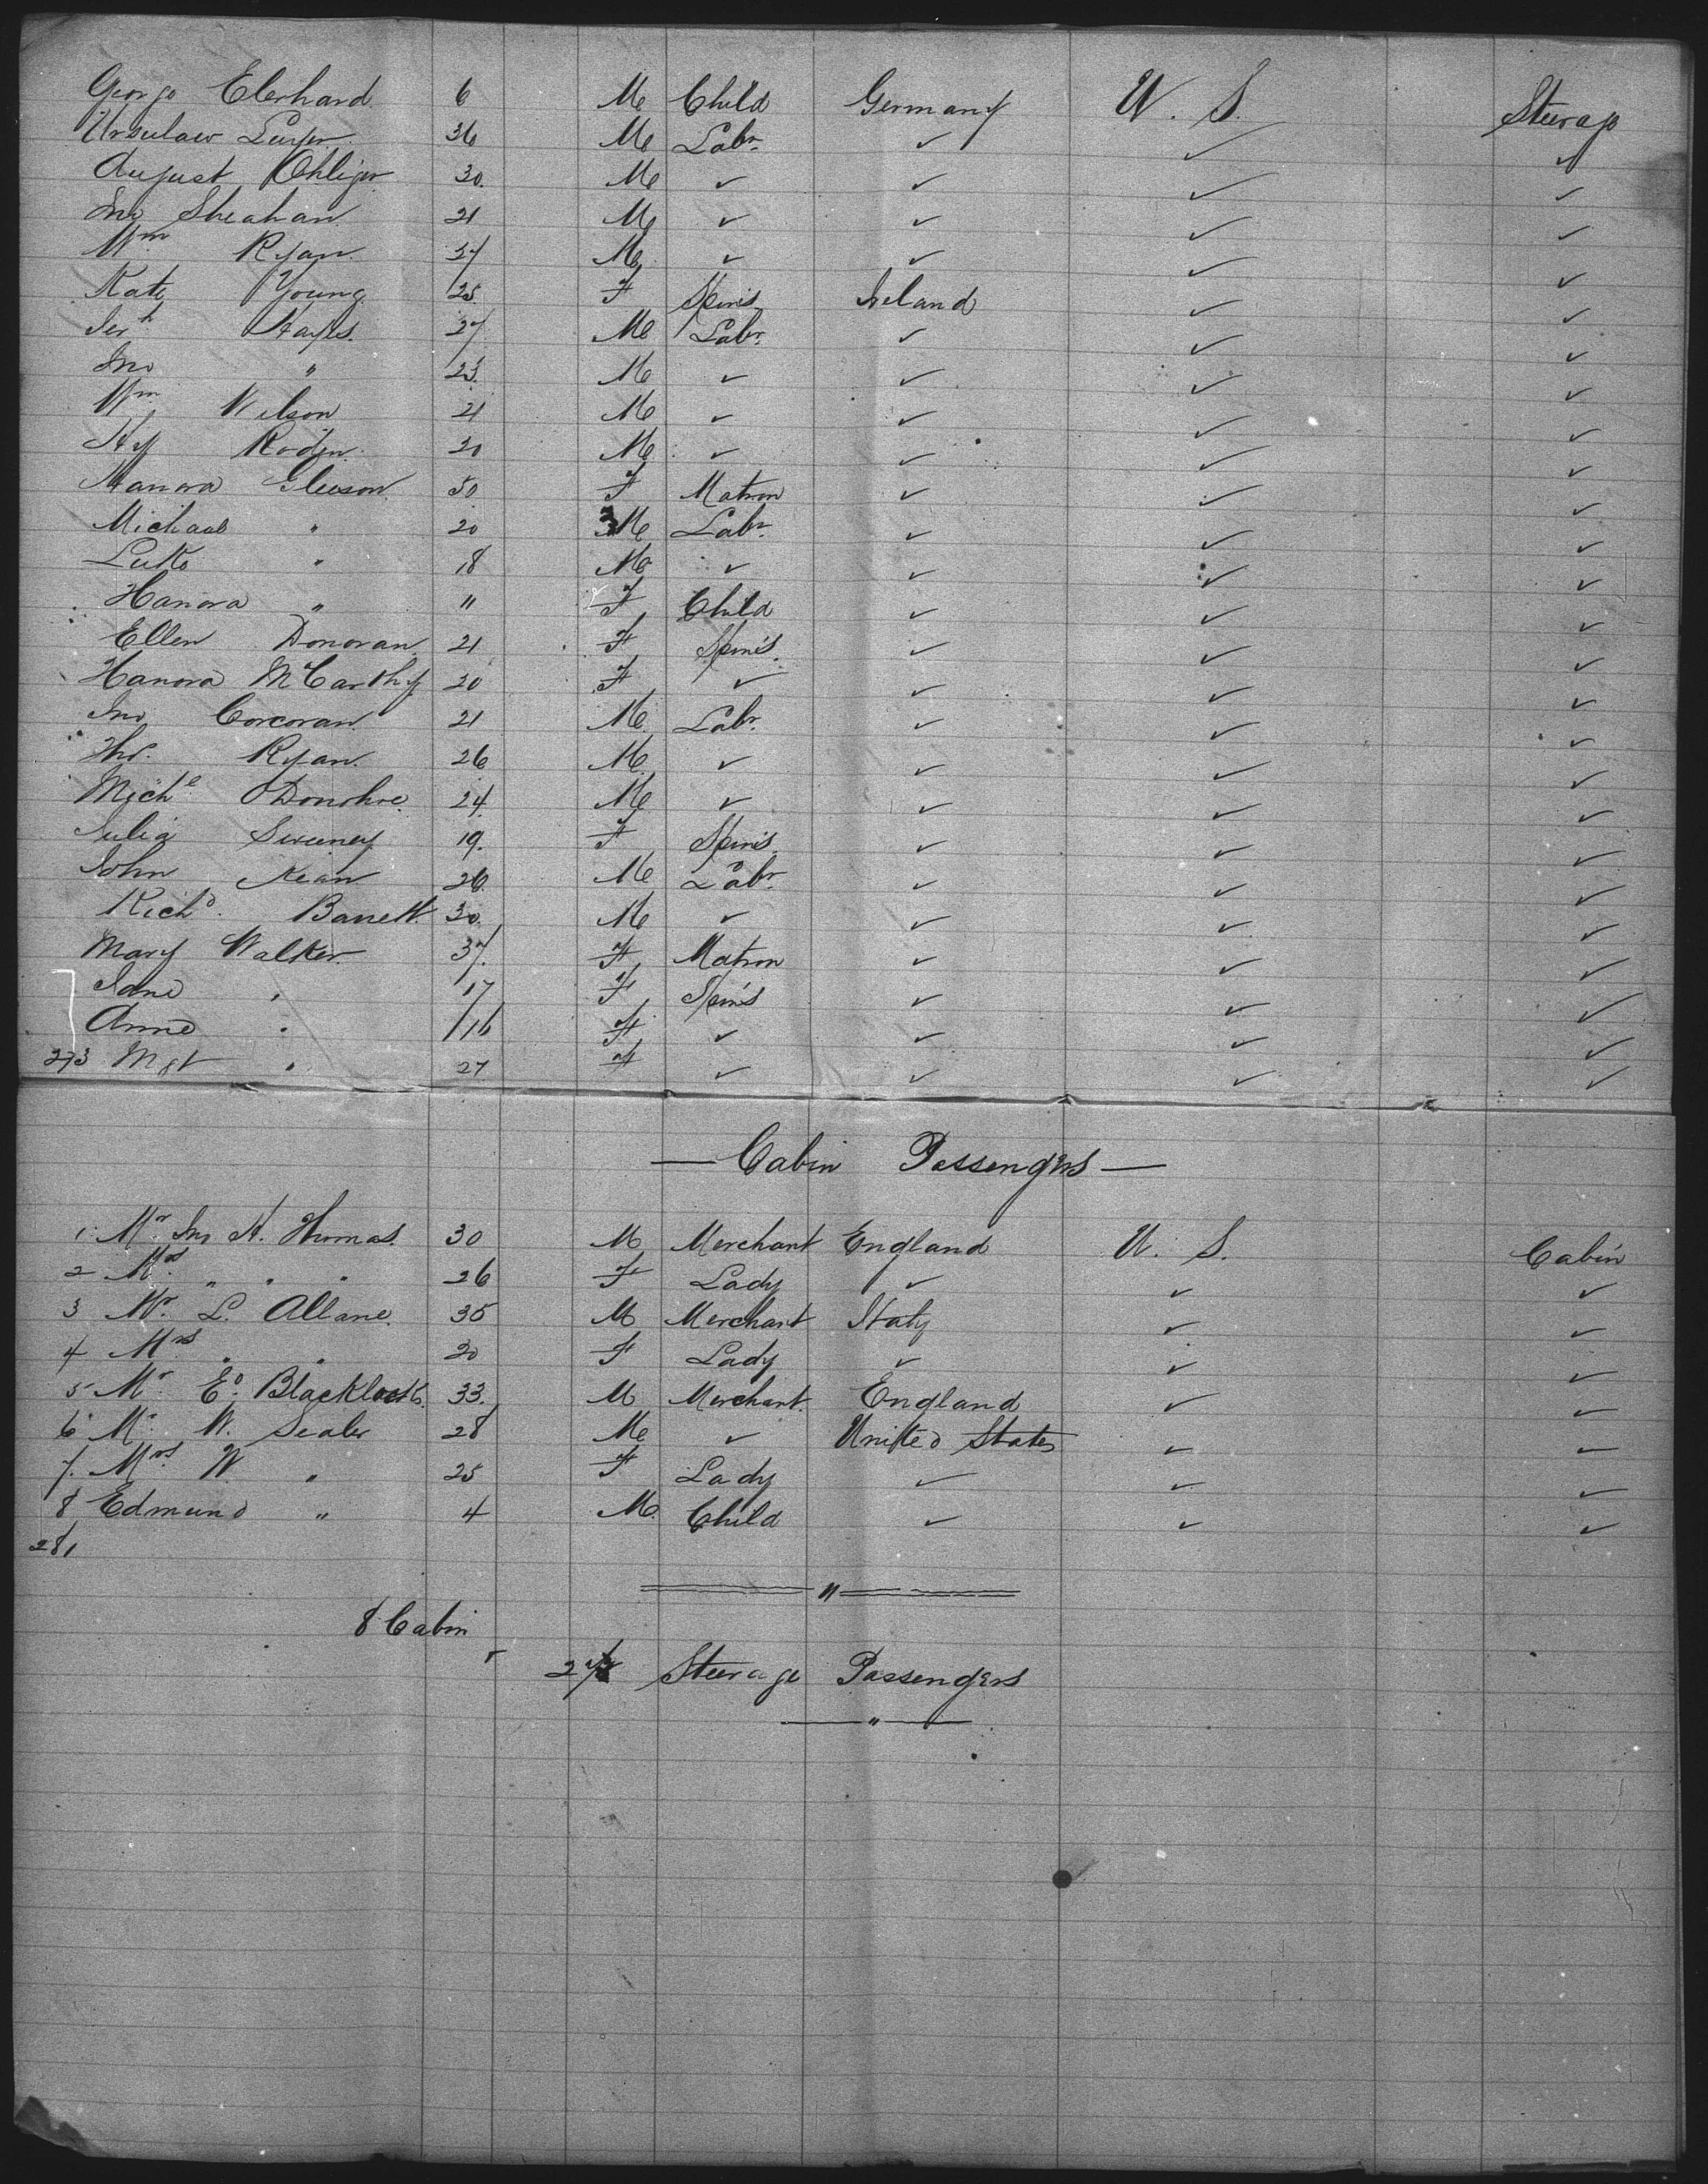 George Eberhard 6 M Child Germany U. S. Steerage
36 M Labr. ✓ ✓ ✓
August Ohliger 30. M ✓ ✓ ✓ ✓
Jno Sheahan 21 M ✓ ✓ ✓ ✓
Wm Ryan 27 M ✓ ✓ ✓ ✓
Kate Young 25 F Spins Ireland ✓ ✓
Jerh Hayes. 27 M Labr. ✓ ✓ ✓
Jno " 23. M ✓ ✓ ✓ ✓
Wm Wilson 21 M ✓ ✓ ✓ ✓
Hy 20 M ✓ ✓ ✓ ✓
Hanora Gleeson 50 F Matron ✓ ✓ ✓
Michael " 20 M Labr. ✓ ✓ ✓
Luke " 18 M ✓ ✓ ✓ ✓
Hanora " " F Child ✓ ✓ ✓
Ellen Donovan 21 F Spins. ✓ ✓ ✓
Hanora McCarthy 20 F ✓ ✓ ✓ ✓
Jno Corcoran 21 M Labr. ✓ ✓ ✓
Ths. Ryan. 26 M ✓ ✓ ✓ ✓
Michl O'Donohoe 24. M ✓ ✓ ✓ ✓
Julia Sweeney 19. F Spins. ✓ ✓ ✓
John Kean 26. M Labr ✓ ✓ ✓
Richd. Barrett. 30. M ✓ ✓ ✓ ✓
Mary Walker. 37. F Matron ✓ ✓ ✓
Jane " 17 F Spins ✓ ✓ ✓
Anne " 16 F ✓ ✓ ✓ ✓
273 Mgt " 27 F ✓ ✓ ✓ ✓
— Cabin Passengers —
1. Mr Jno H. Thomas. 30 M Merchant England U. S. Cabin
2 Mrs. " " " 26 F Lady ✓ ✓ ✓
3 Mr. L. Allane. 35 M Merchant Italy ✓ ✓
4 Mrs " " 20 F Lady ✓ ✓ ✓
5 Mr. Ed. Blacklock. 33. M Merchant. England ✓ ✓
6 Mr. W. 28 M ✓ United States ✓ ✓
7. Mrs W. " 25 F Lady ✓ ✓ ✓
8 Edmund " 4 M. Child ✓ ✓ ✓
281
"
8 Cabin
Steerage Passengers
"